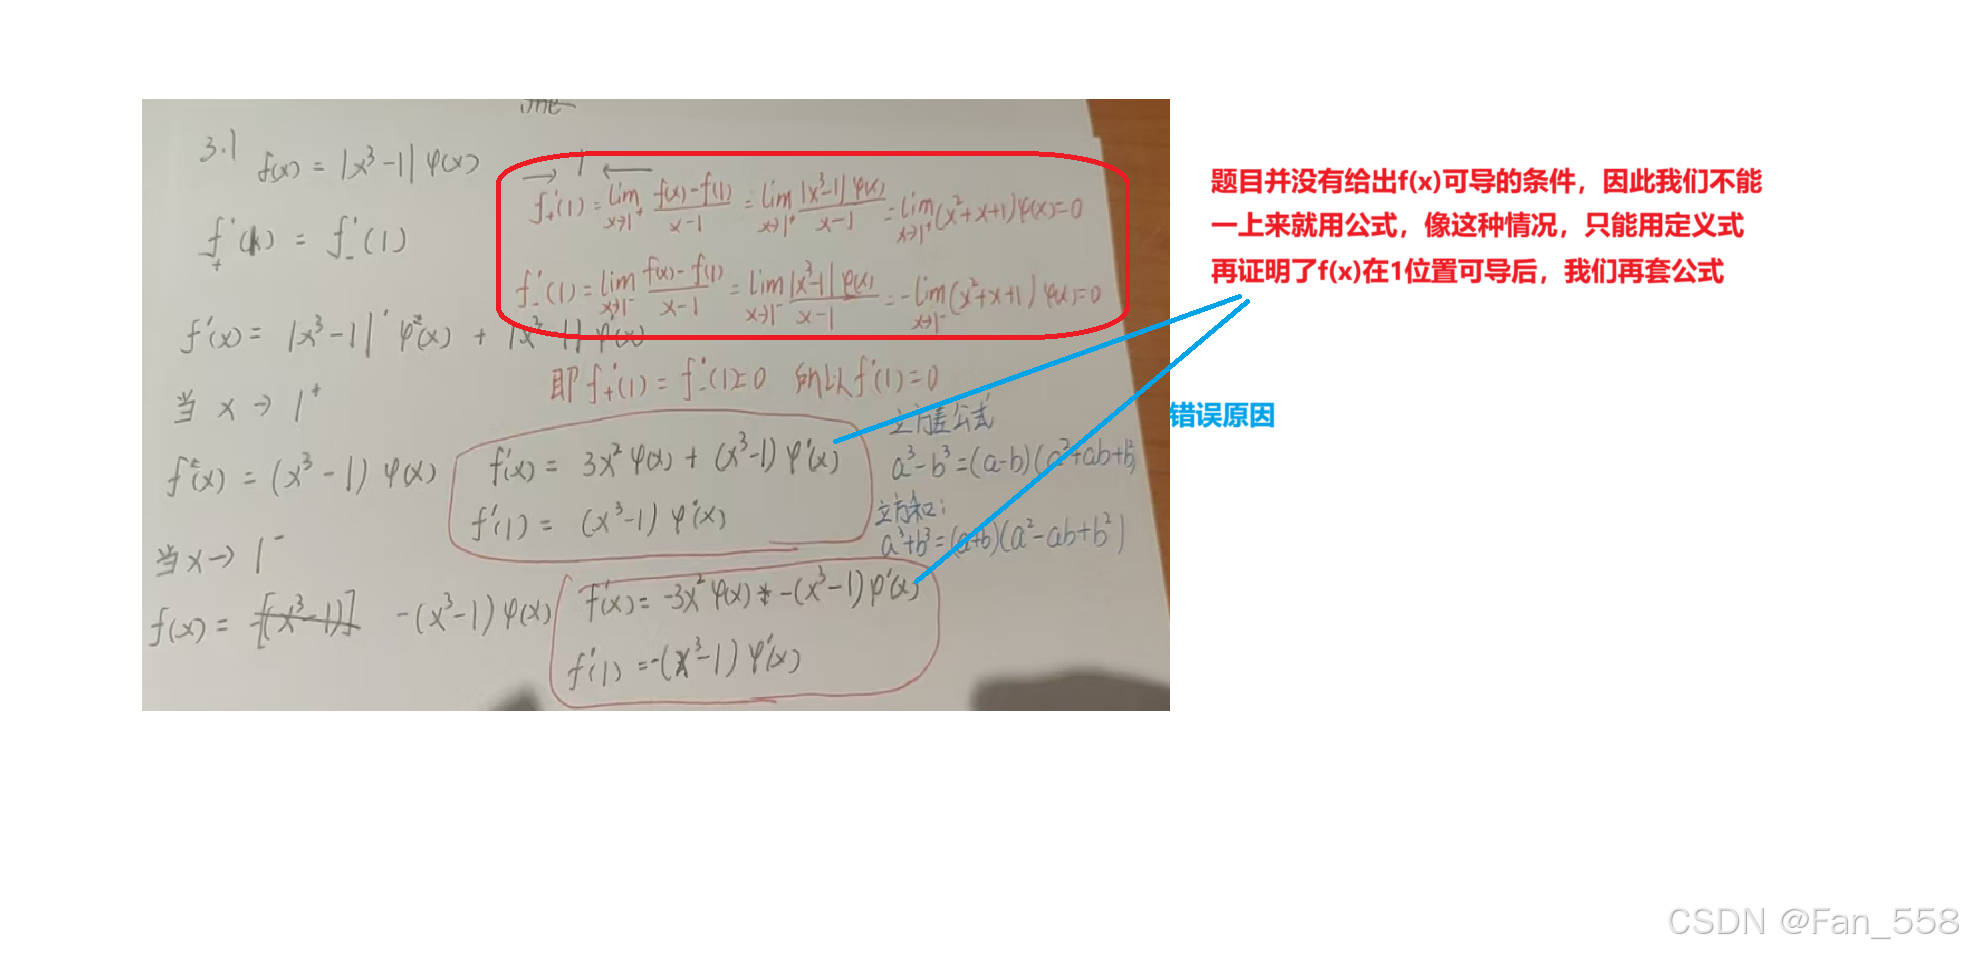 3.1 f(x) = |x³-1| φ(x)
f₊'(1) = f₋'(1)
f'(x) = |x³-1|' φ(x) + |x³-1| φ'(x)
当 x→1⁺
f(x) = (x³-1) φ(x)
当x→1⁻
f(x) = -(x³-1) φ(x)
f₊'(1) = lim x→1⁺ f(x)-f(1)/x-1 = lim x→1⁺ |x³-1| φ(x)/x-1 = lim x→1⁺ (x²+x+1)φ(x)=0
f₋'(1) = lim x→1⁻ f(x)-f(1)/x-1 = lim x→1⁻ |x³-1| φ(x)/x-1 = -lim x→1⁻ (x²+x+1) φ(x)=0
即 f₊'(1) = f₋'(1)=0 所以 f'(1)=0
f'(x) = 3x² φ(x) + (x³-1) φ'(x)
f'(1) = (x³-1) φ'(x)
f'(x) = -3x² φ(x) -(x³-1) φ'(x)
f'(1) = -(x³-1) φ'(x)
立方差公式
a³-b³=(a-b)(a²+ab+b²)
立方和:
a³+b³=(a+b)(a²-ab+b²)
题目并没有给出f(x)可导的条件，因此我们不能
一上来就用公式，像这种情况，只能用定义式
再证明了f(x)在1位置可导后，我们再套公式
错误原因
CSDN @Fan_558